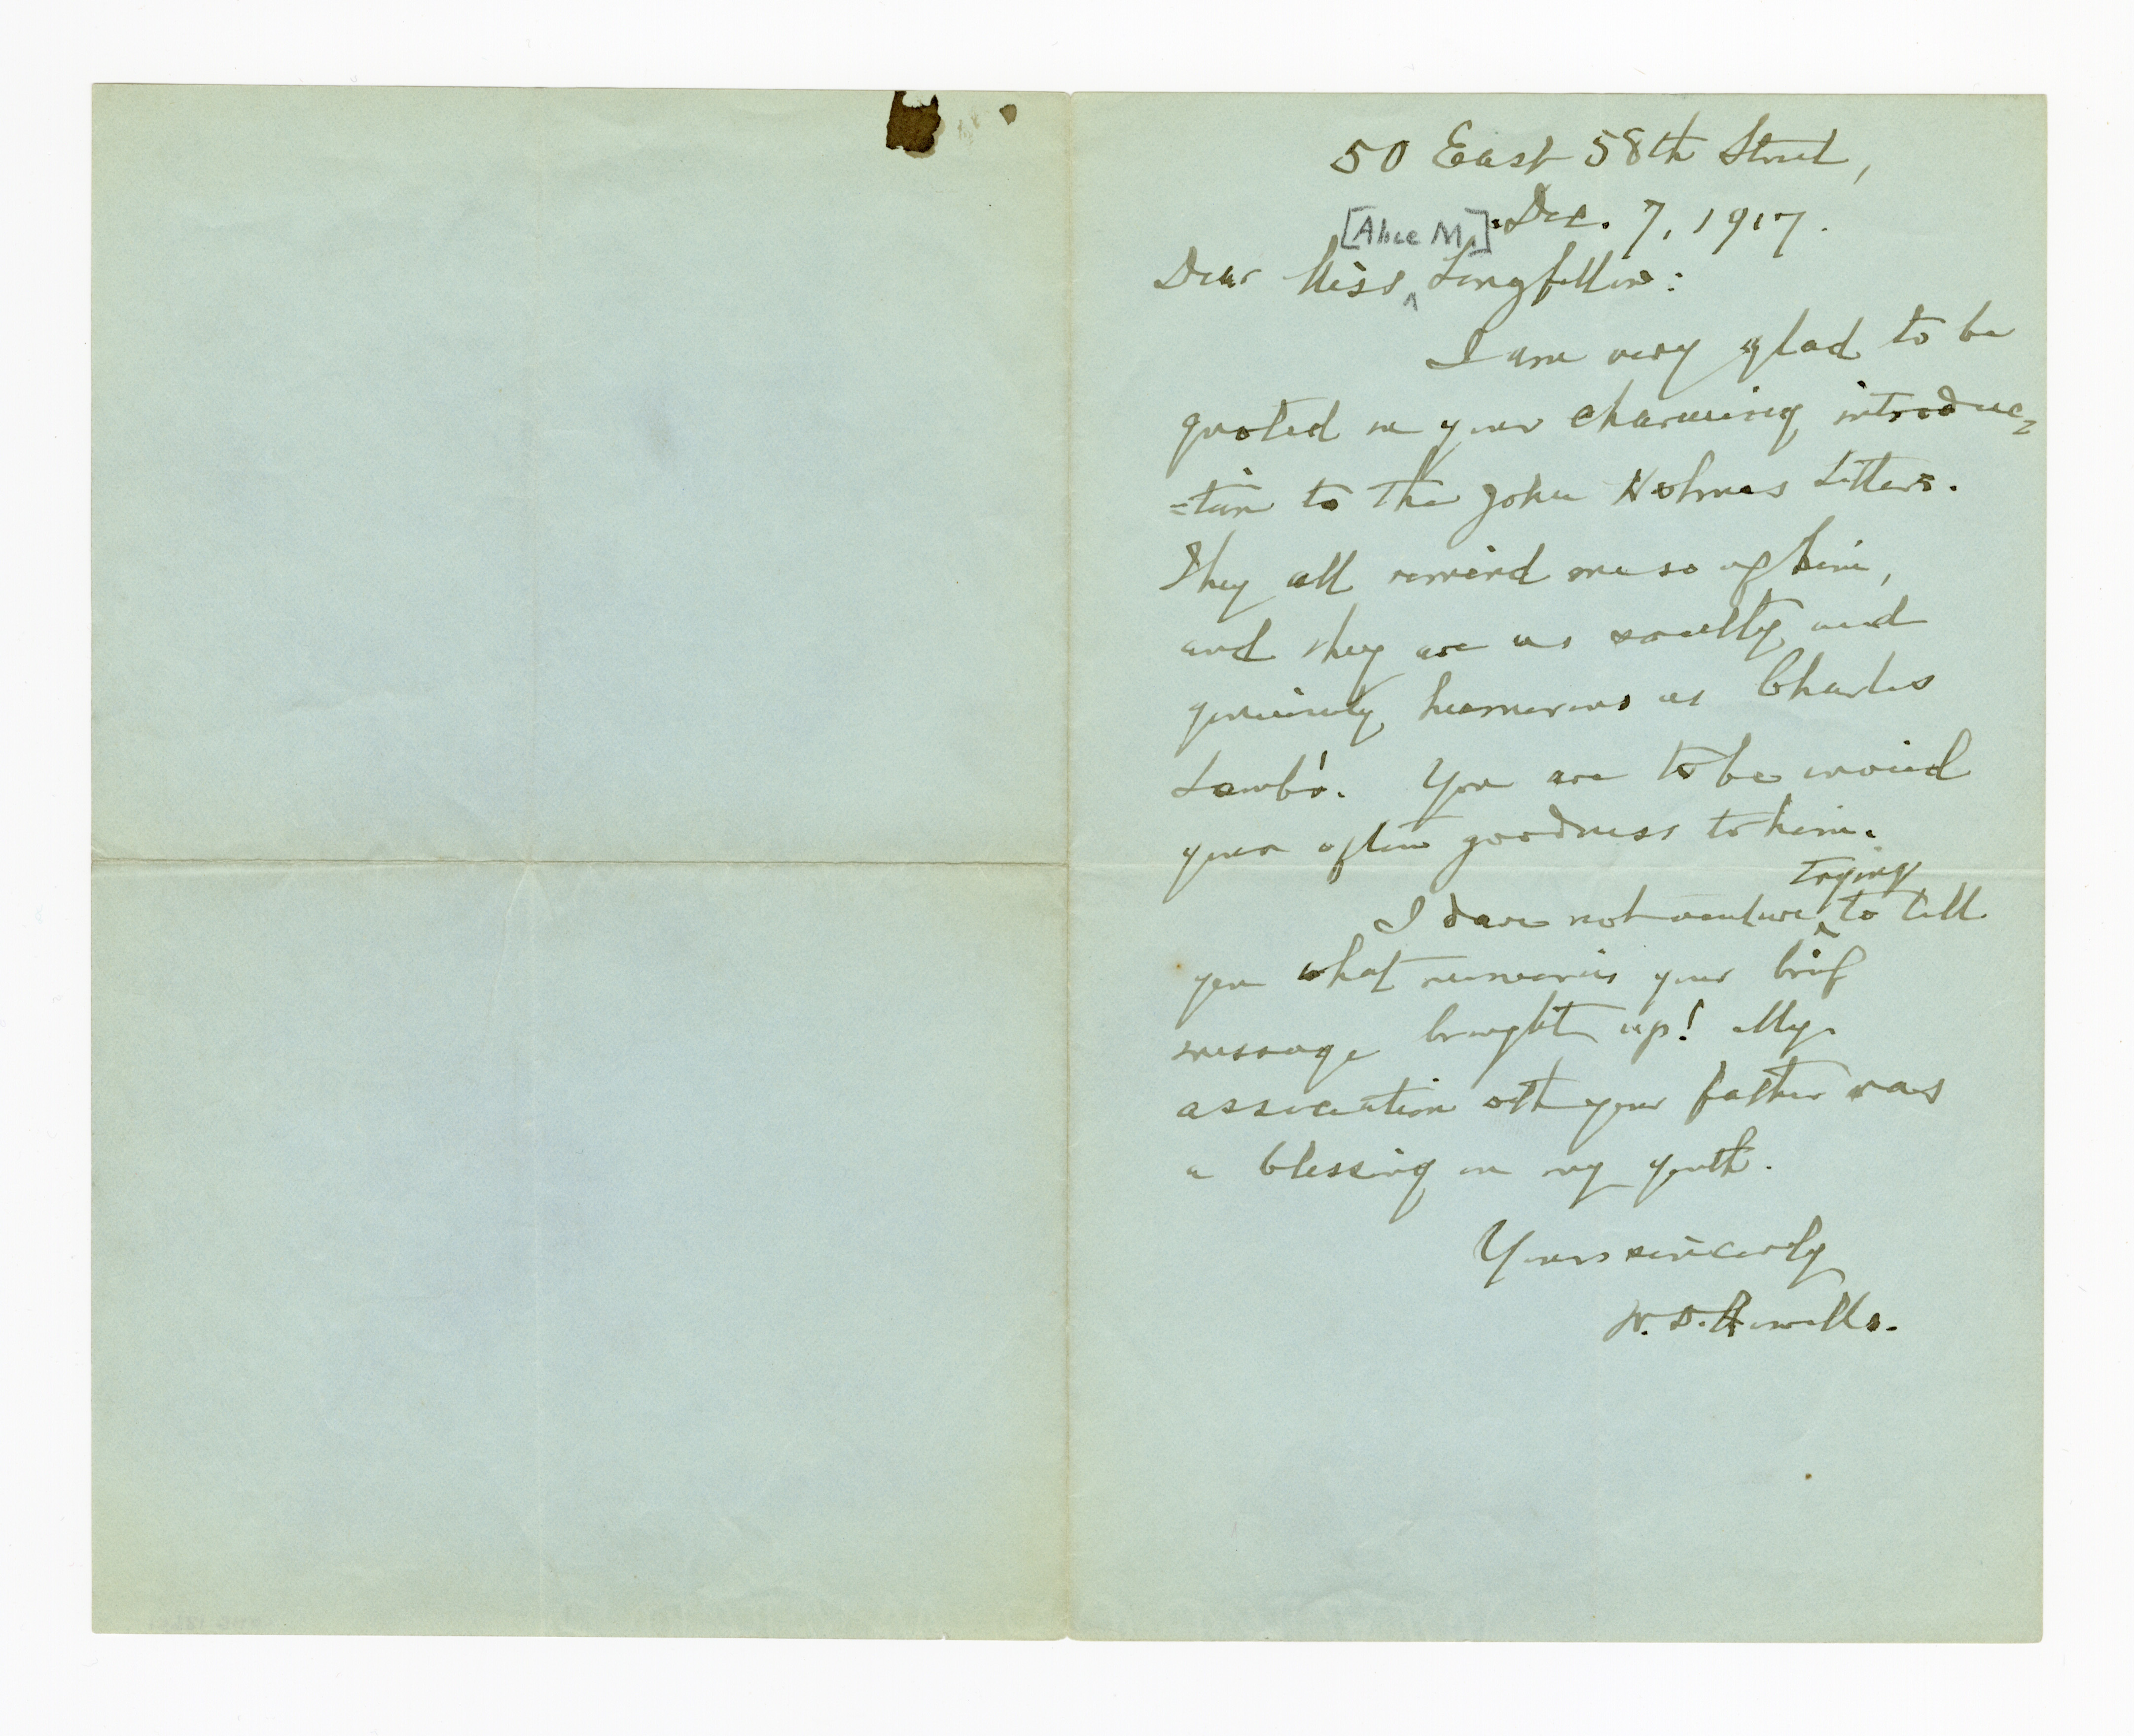 50 East 58th Street,
[Alice M.] Dec. 7, 1917.
Dear Miss ^ Longfellow:
I am very glad to be
quoted in your charming introduc-
-tion to the John Holmes Letters.
They all remind me so of him,
and they are as and
genuinely humorous as Charles
Lamb's. You are to be envied
your often goodness to him.
trying
I dare not venture ^ to tell
you what memories your brief
message brought up! My
association with your father was
a blessing in my youth.
Yours sincerely
W. D. Howells.